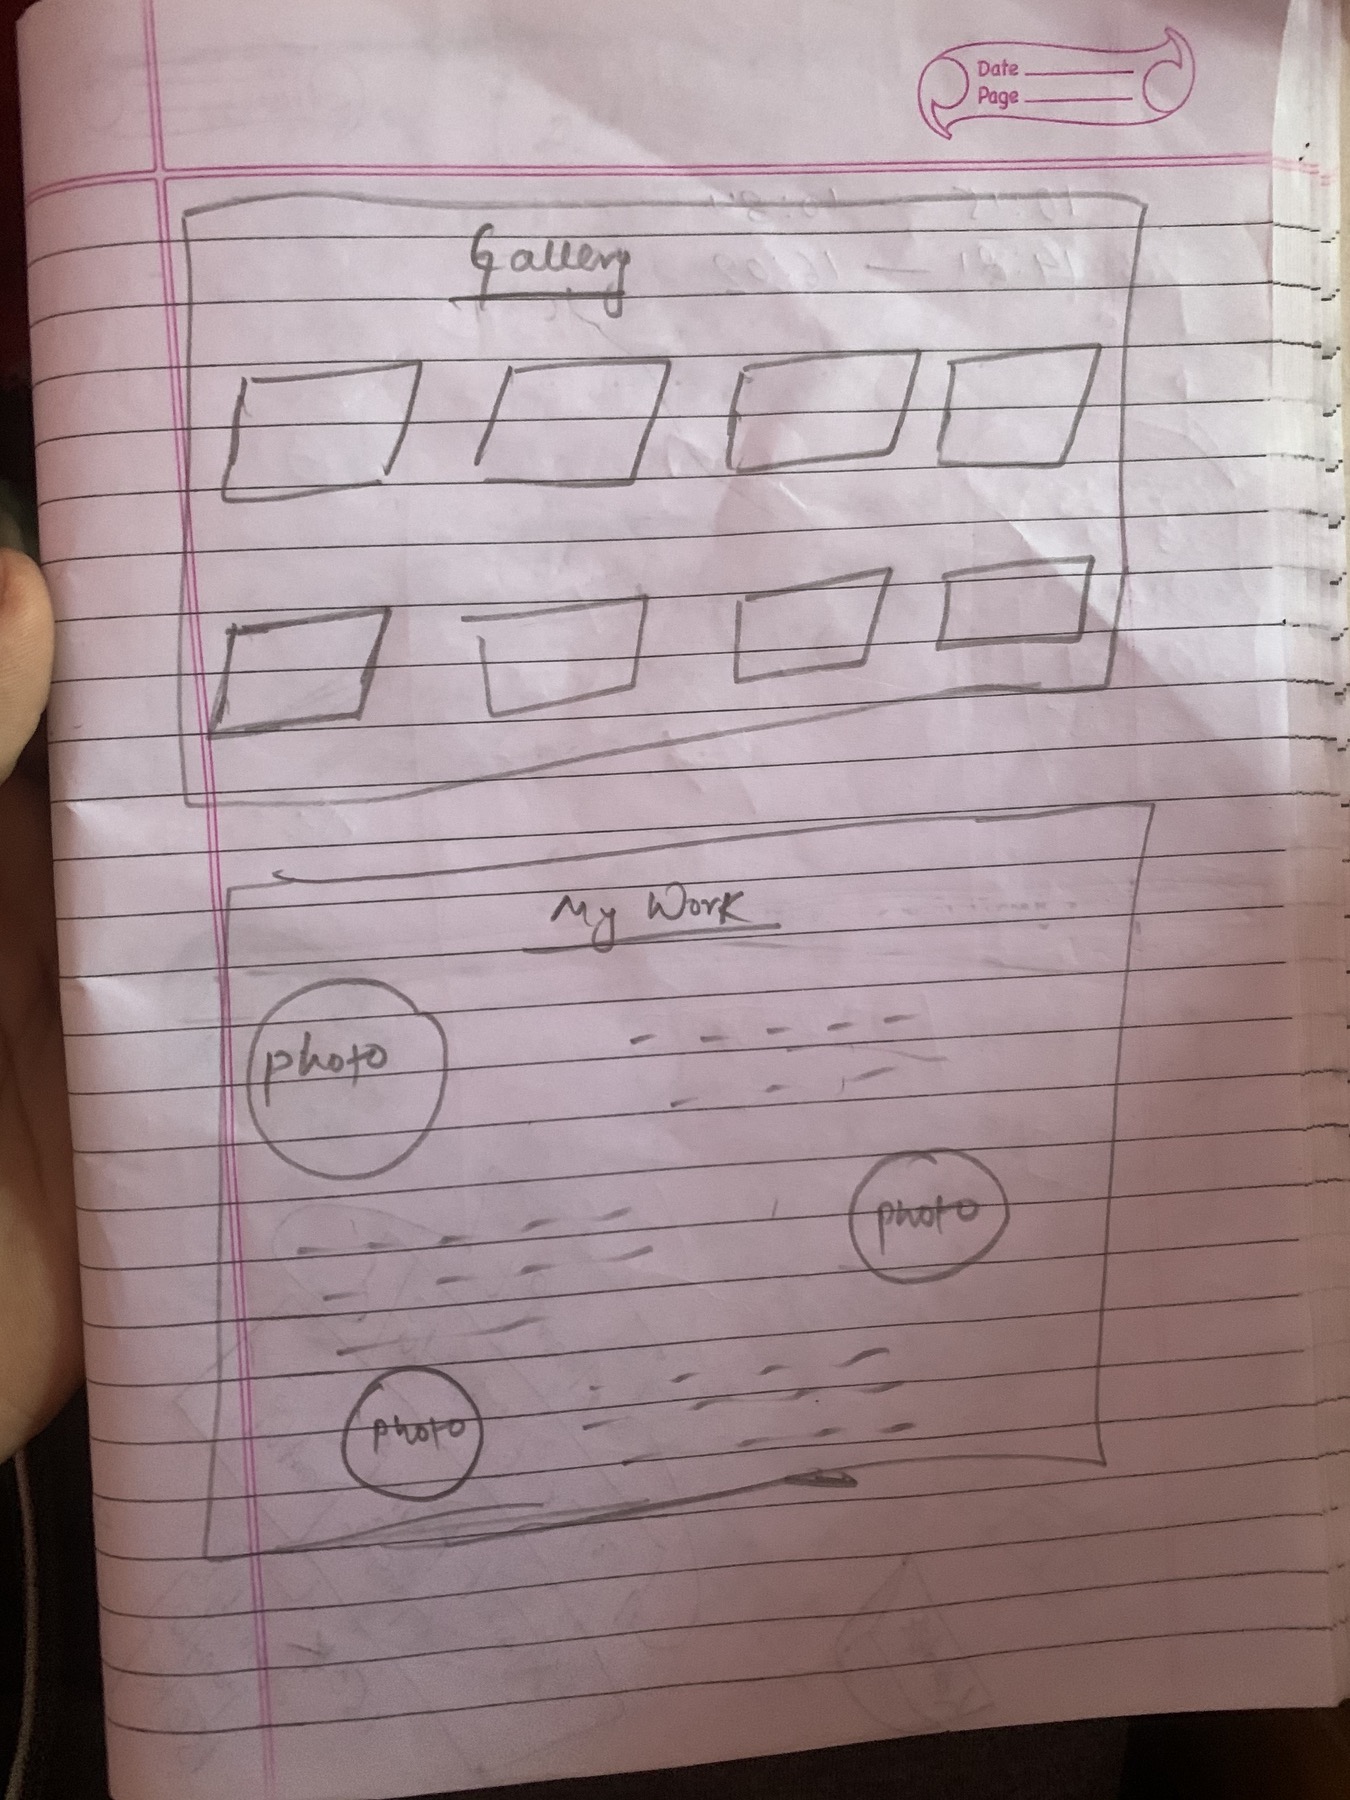 Date
Page
Gallery
My Work
photo
photo
photo